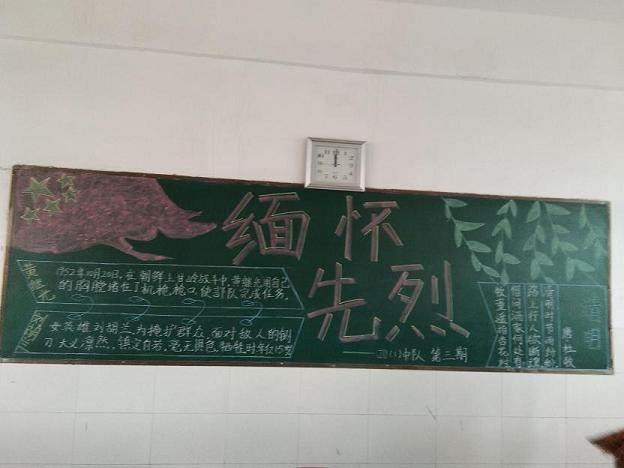 缅怀
先烈
黄继光
1952年10月20日,在朝鲜上甘岭战斗中,黄继光用自己
的胸膛堵住了机枪枪口,使部队完成任务。
女英雄刘胡兰,为掩护群众,面对敌人的铡
刀大义凛然,镇定自若,毫无惧色,牺牲时年仅15岁
中队 第三期
清明
唐 杜牧
清明时节雨纷纷
路上行人欲断魂
借问酒家何处有
牧童遥指杏花村